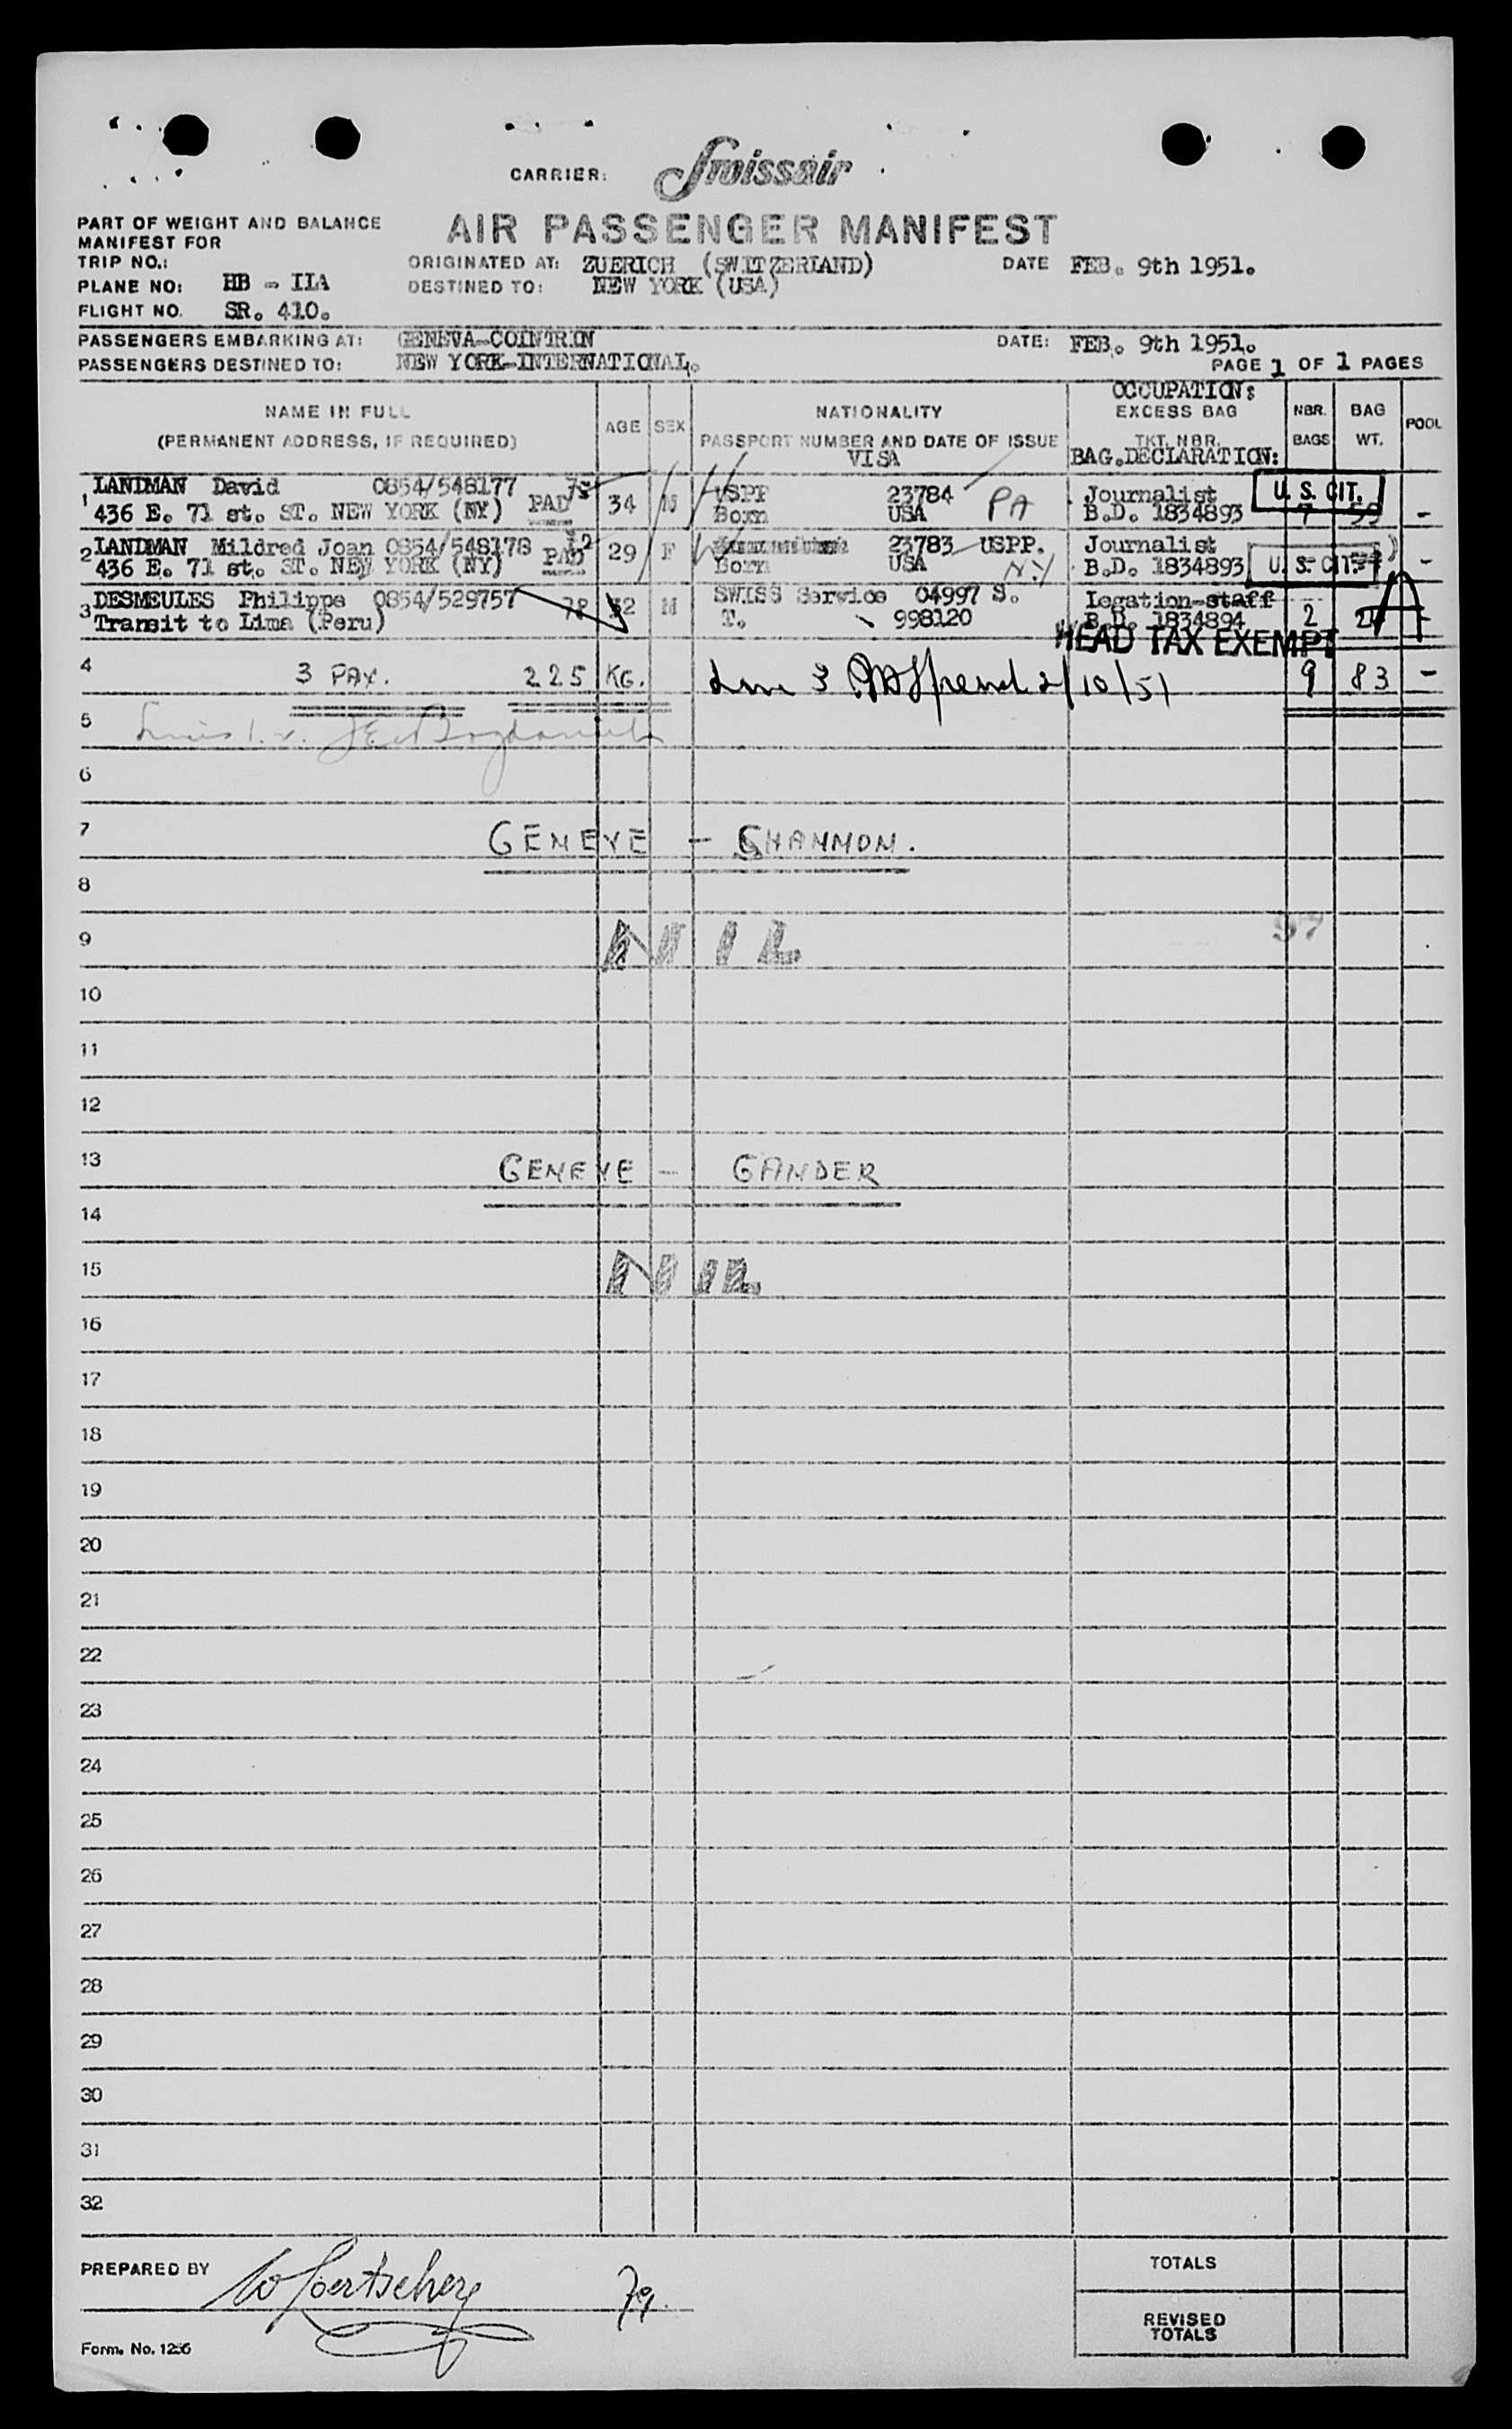 CARRIER: Swissair
PART OF WEIGHT AND BALANCE
MANIFEST FOR
AIR PASSENGER MANIFEST
TRIP NO.:
ORIGINATED AT: ZUERICH (SWITZERLAND) DATE FEB. 9th 1951.
PLANE NO: HB - IIA DESTINED TO: NEW YORK (USA)
FLIGHT NO. SR. 410.
PASSENGERS EMBARKING AT: GENEVA-COINTRIN DATE: FEB. 9th 1951.
PASSENGERS DESTINED TO: NEW YORK-INTERNATIONAL.
PAGE 1 OF 1 PAGES
NAME IN FULL
(PERMANENT ADDRESS, IF REQUIRED)
AGE SEX
NATIONALITY
PASSPORT NUMBER AND DATE OF ISSUE
VISA
OCCUPATION:
EXCESS BAG
TKT. NBR.
BAG.DECLARATION:
NBR.
BAGS
BAG
WT.
POOL
1 LANDMAN David 0854/548177 75 34 M USPP 23784 Journalist U. S. CIT.
436 E. 71 st. ST. NEW YORK (NY) PAD Born USA PA B.D. 1834893 7 59 -
2 LANDMAN Mildred Joan 0854/548178 72 29 F 23783 USPP. Journalist
436 E. 71 st. ST. NEW YORK (NY) PAD Born USA N.Y B.D. 1834893 U. S. CIT. -
3 DESMEULES Philippe 0854/529757 78 32 M SWISS Service 04997 S. Legation-staff
Transit to Lima (Peru) T. 998120 B.D. 1834894 2 24 -
A
HEAD TAX EXEMPT
4 3 PAX. 225 KG. 3 2/10/51 9 83 -
5
6
7 GENEVE - SHANNON.
8
9 NIL 97
10
11
12
13 GENEVE - GANDER
14
15 NIL
16
17
18
19
20
21
22
23
24
25
26
27
28
29
30
31
32
PREPARED BY 79.
TOTALS
REVISED
TOTALS
Form. No. 1256